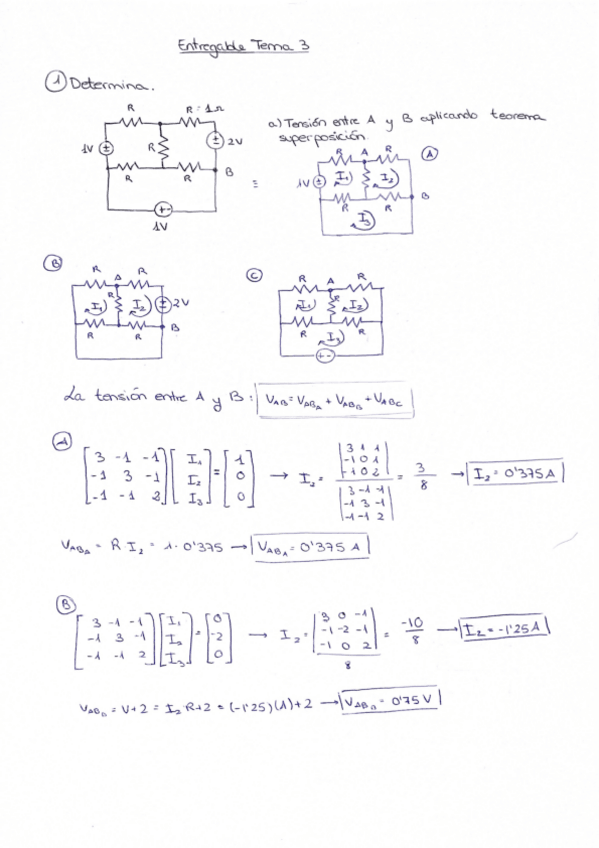 Entregable Tema 3
① Determina.
R R = 1Ω
1V R 2V
R R B
1V
a) Tensión entre A y B aplicando teorema
superposición.
≡
R A R Ⓐ
1V I₁ I₂
R R B
I₃
Ⓑ
R A R
R I₁ I₂ 2V
R R B
Ⓒ
R A R
I₁ R I₂
R I₃ R
+ -
La tensión entre A y B: V_AB = V_AB_A + V_AB_B + V_AB_C
Ⓐ
[3 -1 -1] [I₁] [1]
[-1 3 -1] [I₂] = [0]
[-1 -1 2] [I₃] [0]
→ I₂ = |3 1 1| |-1 0 1| |-1 0 2| / |3 -1 -1| |-1 3 -1| |-1 -1 2| = 3/8 → I₂ = 0'375 A
V_AB_A = R I₂ = 1·0'375 → V_AB_A = 0'375 A
Ⓑ
[3 -1 -1] [I₁] [0]
[-1 3 -1] [I₂] = [-2]
[-1 -1 2] [I₃] [0]
→ I₂ = |3 0 -1| |-1 -2 -1| |-1 0 2| / 8 = -10/8 → I₂ = -1'25 A
V_AB_B = V+2 = I₂·R+2 = (-1'25)(1)+2 → V_AB_B = 0'75 V